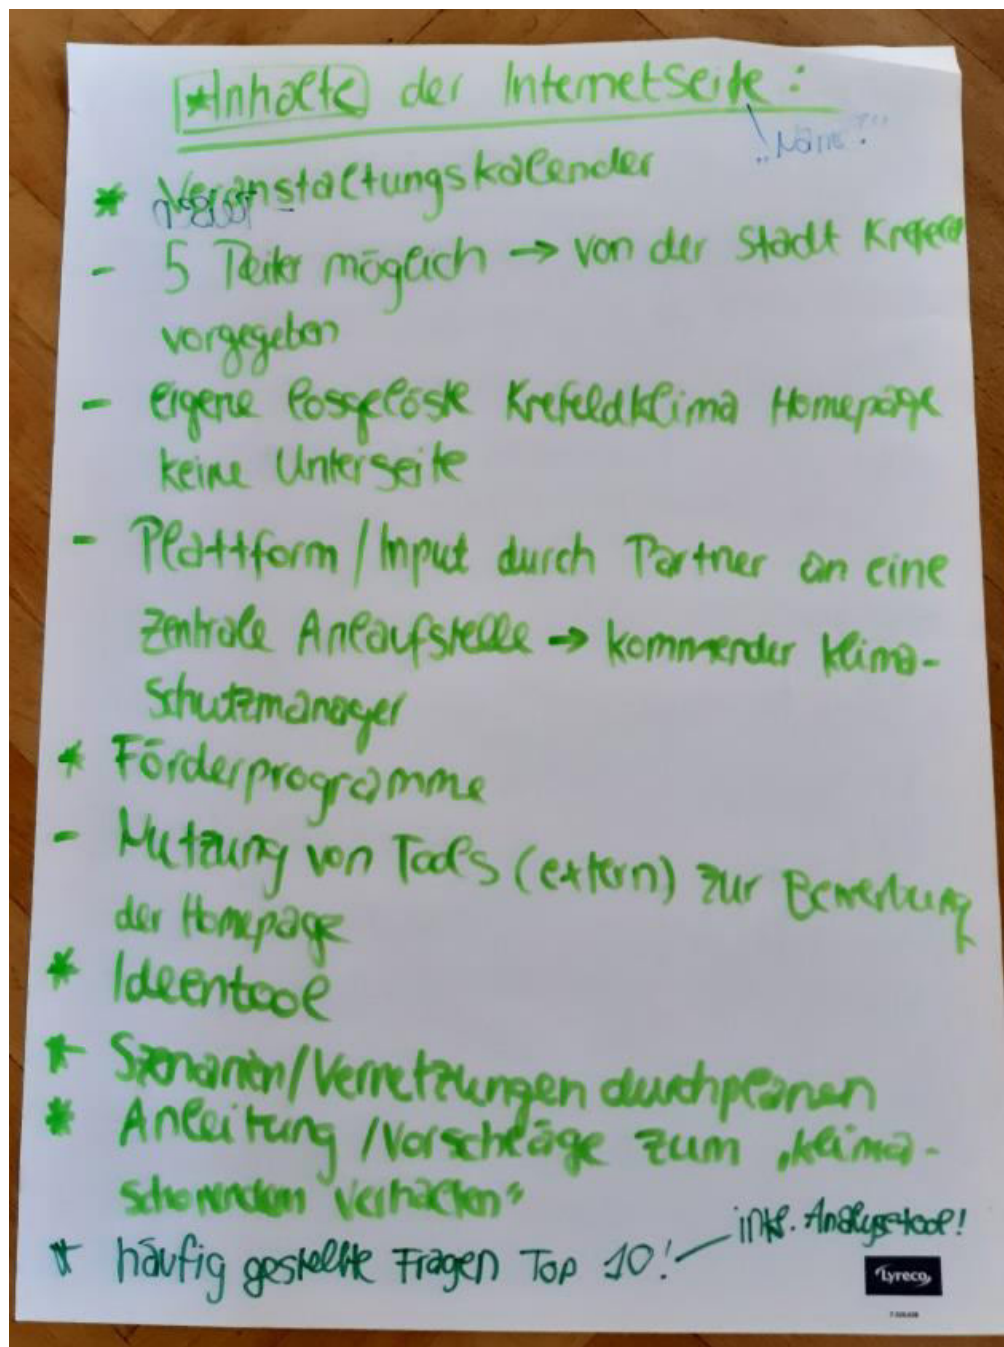 * Inhalte der Internetseite:
"Name?"
* Veranstaltungskalender
- 5 Reiter möglich → von der Stadt Krefeld
vorgegeben
- eigene losgelöste Krefeldklima Homepage
keine Unterseite
- Plattform / Input durch Partner an eine
zentrale Anlaufstelle → kommender Klima-
schutzmanager
* Förderprogramme
- Nutzung von Tools (extern) zur Bewerbung
der Homepage
* Ideentool
* Szenarien/Vernetzungen durchplanen
* Anleitung / Vorschläge zum „klima-
schonendem Verhalten"
* häufig gestellte Fragen Top 10! — inkl. Analysetool!
Lyreco